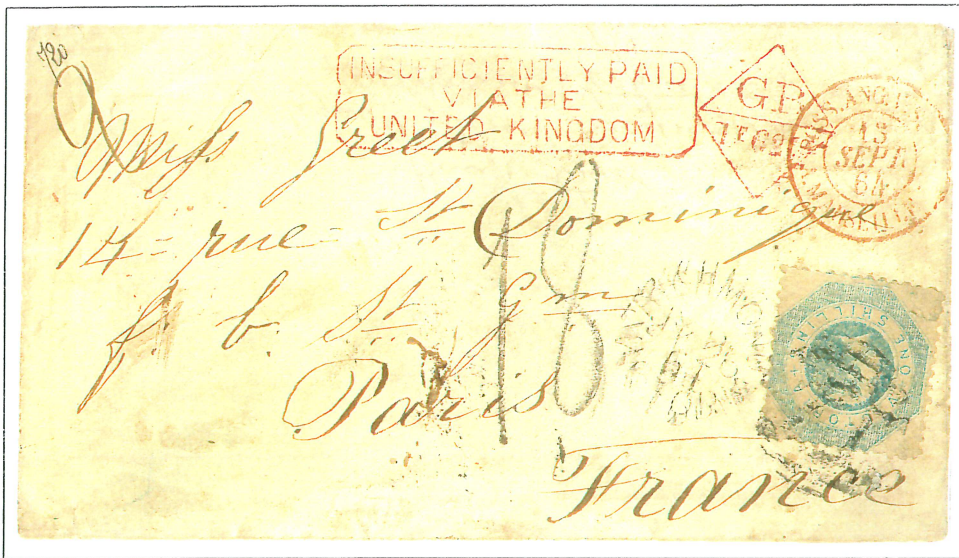 720
INSUFFICIENTLY PAID
VIA THE
UNITED KINGDOM
G.P.
1F60c
13
SEPT
64
MARSEILLE
Miss Greet
14 = rue = St Dominique
f. b. St Gm
Paris
France
18
RICHMOND
ONE SHILLING